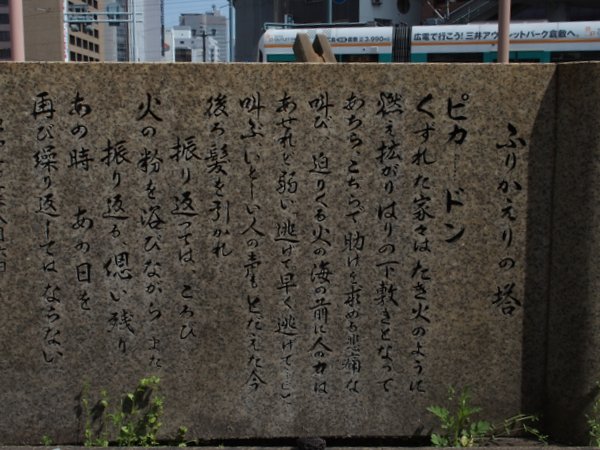 広電で行こう! 三井アウトレットパーク倉敷へ。
3,990円
ふりかえりの塔
ピカ―ドン
くずれた家々は たき火のように
燃え拡がり はりの下敷きとなって
あちらこちらで助けを求める悲痛な
叫び 迫りくる火の海の前に人の力は
あせれど弱い「逃げて早く逃げて―」と
叫ぶ いとしい人の声も とだえた今
後ろ髪を引かれ
振り返っては、ころび
火の粉を浴びながら また
振り返る、思い残り
あの時 あの日を
再び繰り返しては ならない